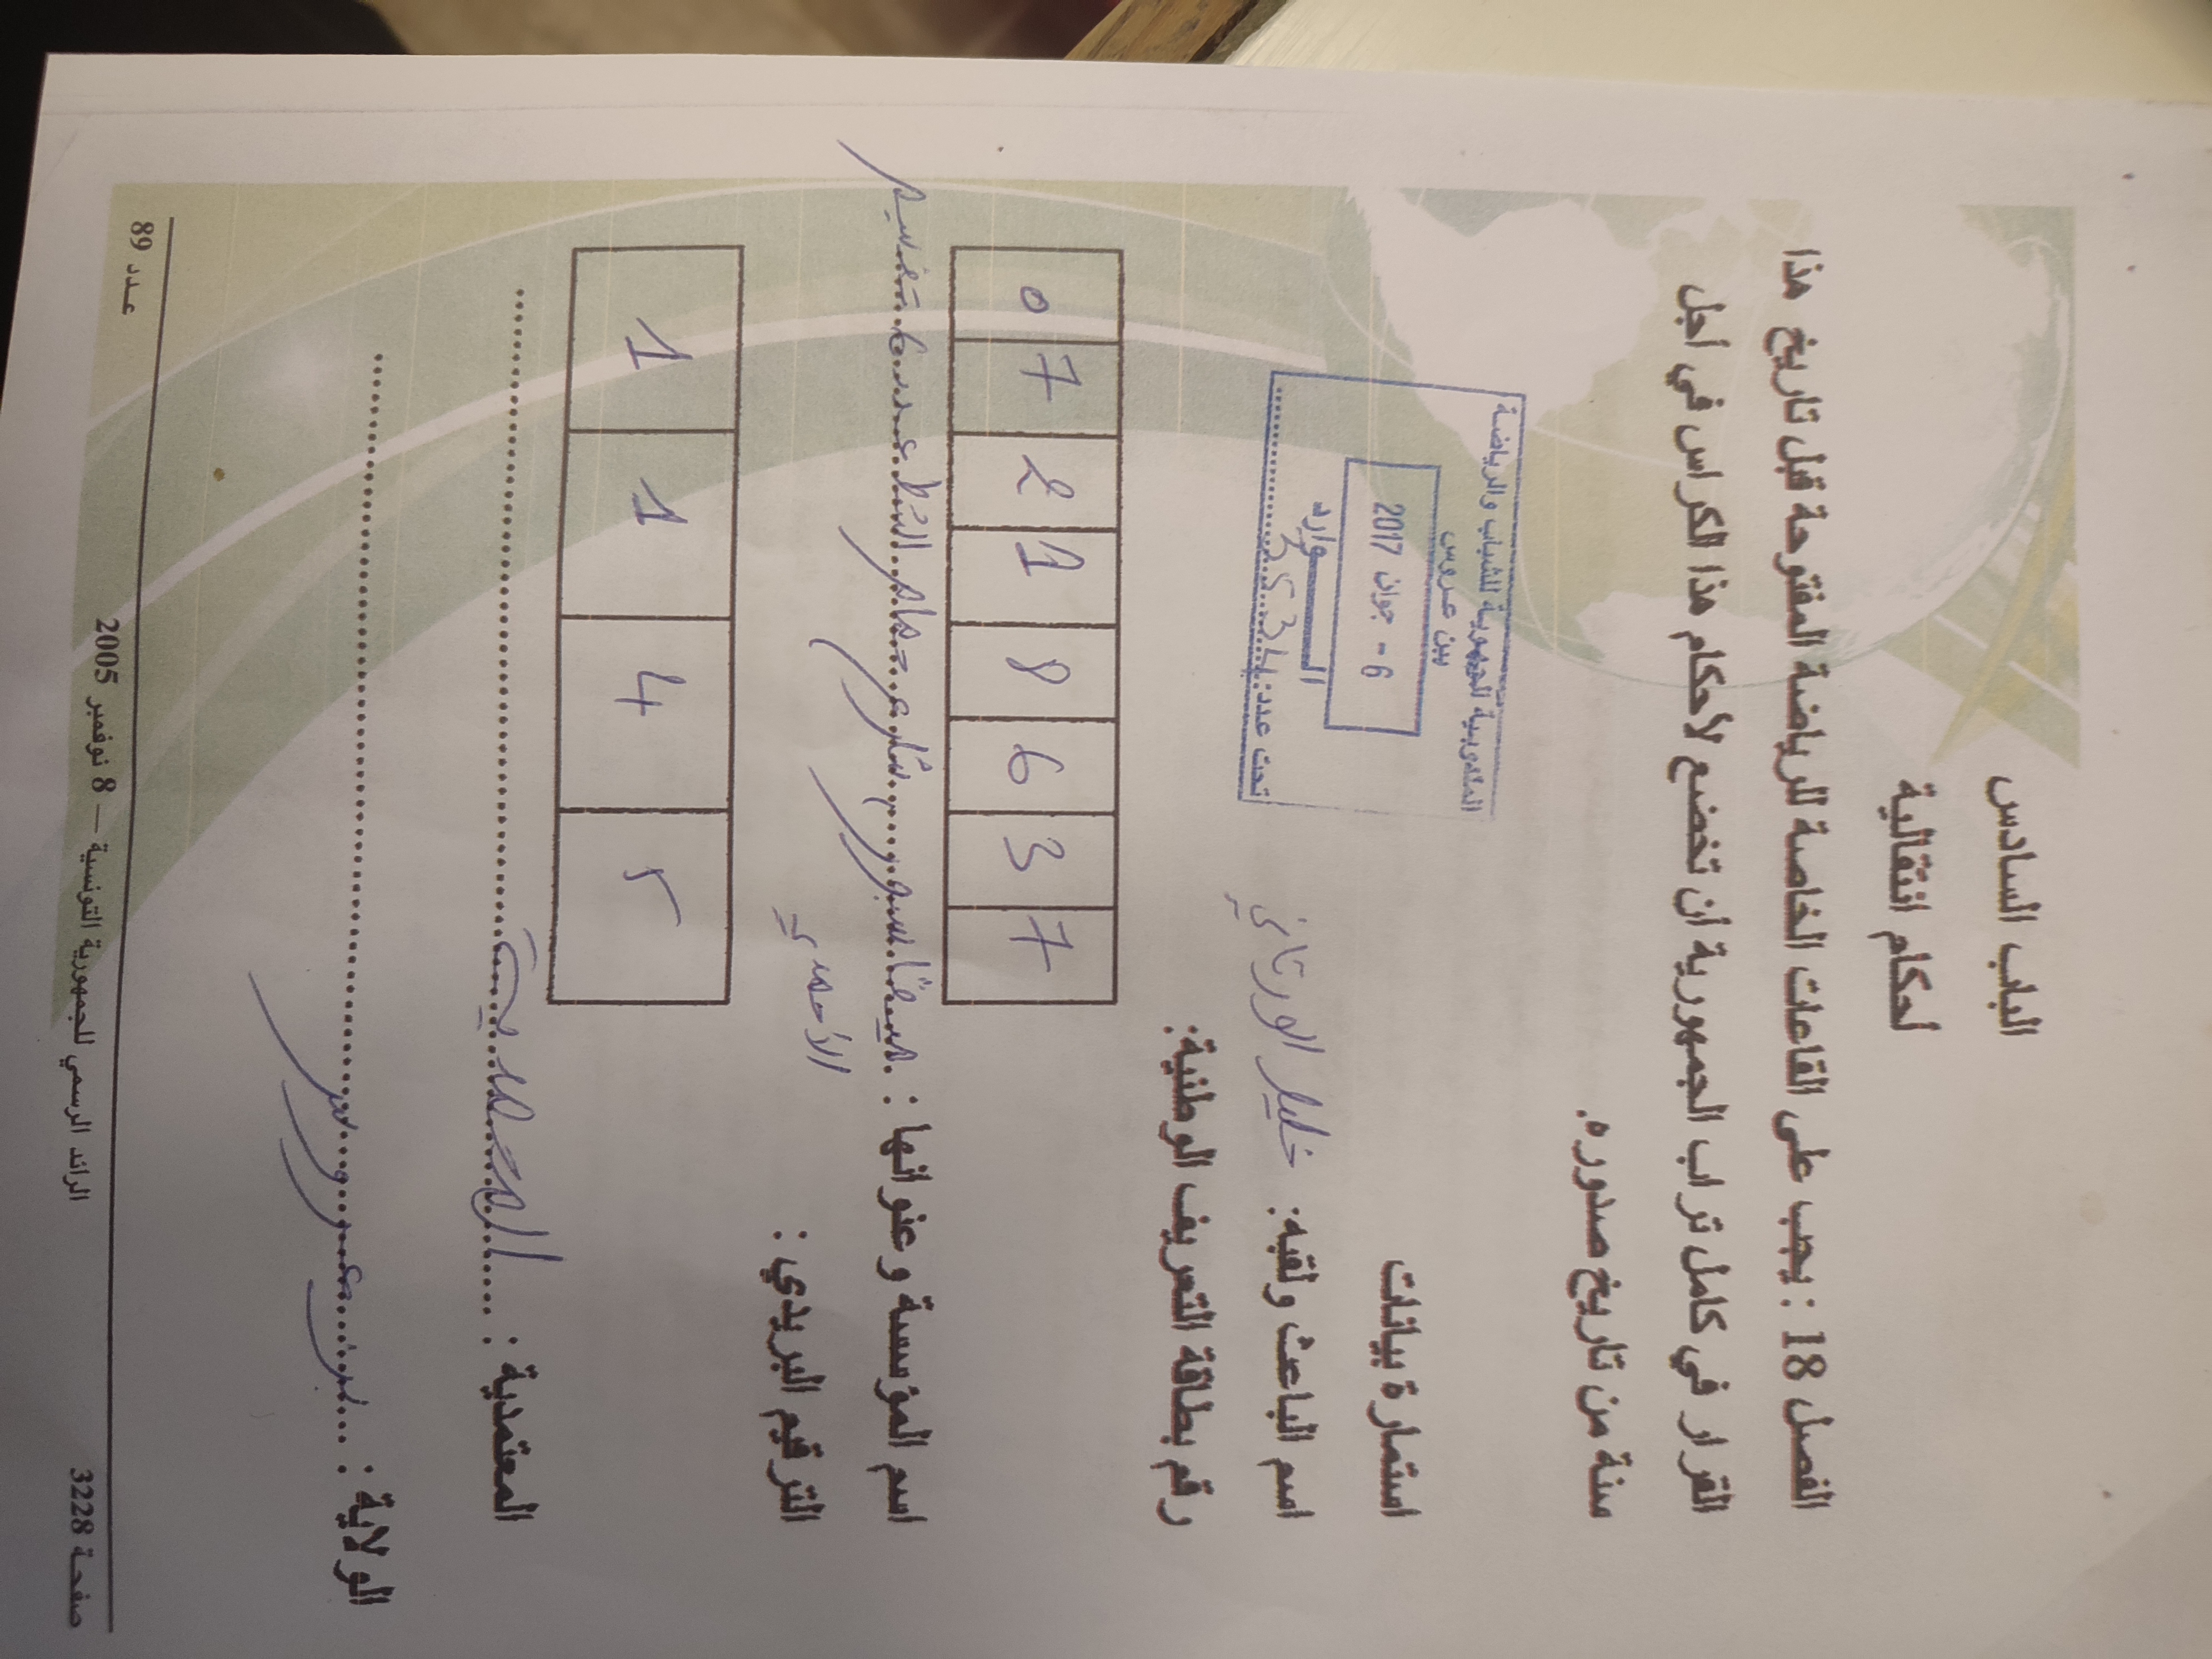 الباب السادس
أحكام انتقالية
الفصل 18 : يجب على القاعات الخاصة للرياضة المفتوحة قبل تاريخ هذا
القرار في كامل تراب الجمهورية أن تخضع لأحكام هذا الكراس في أجل
سنة من تاريخ صدوره.
المندوبية الجهوية للشباب والرياضة
ببن عروس
6 - جوان 2017
الــــوارد
تحت عدد:
استمارة بيانات
اسم الباعث ولقبه: خليل الورتاني
رقم بطاقة التعريف الوطنية:
0 7 2 1 8 6 3 7
اسم المؤسسة وعنوانها : شارع حمام الشط عدد تقسيم
الأحمدي
الترقيم البريدي :
1 1 4 5
المعتمدية : المحمدية
الولاية : بن عروس
صفحة 3228 الرائد الرسمي للجمهورية التونسية — 8 نوفمبر 2005 عدد 89